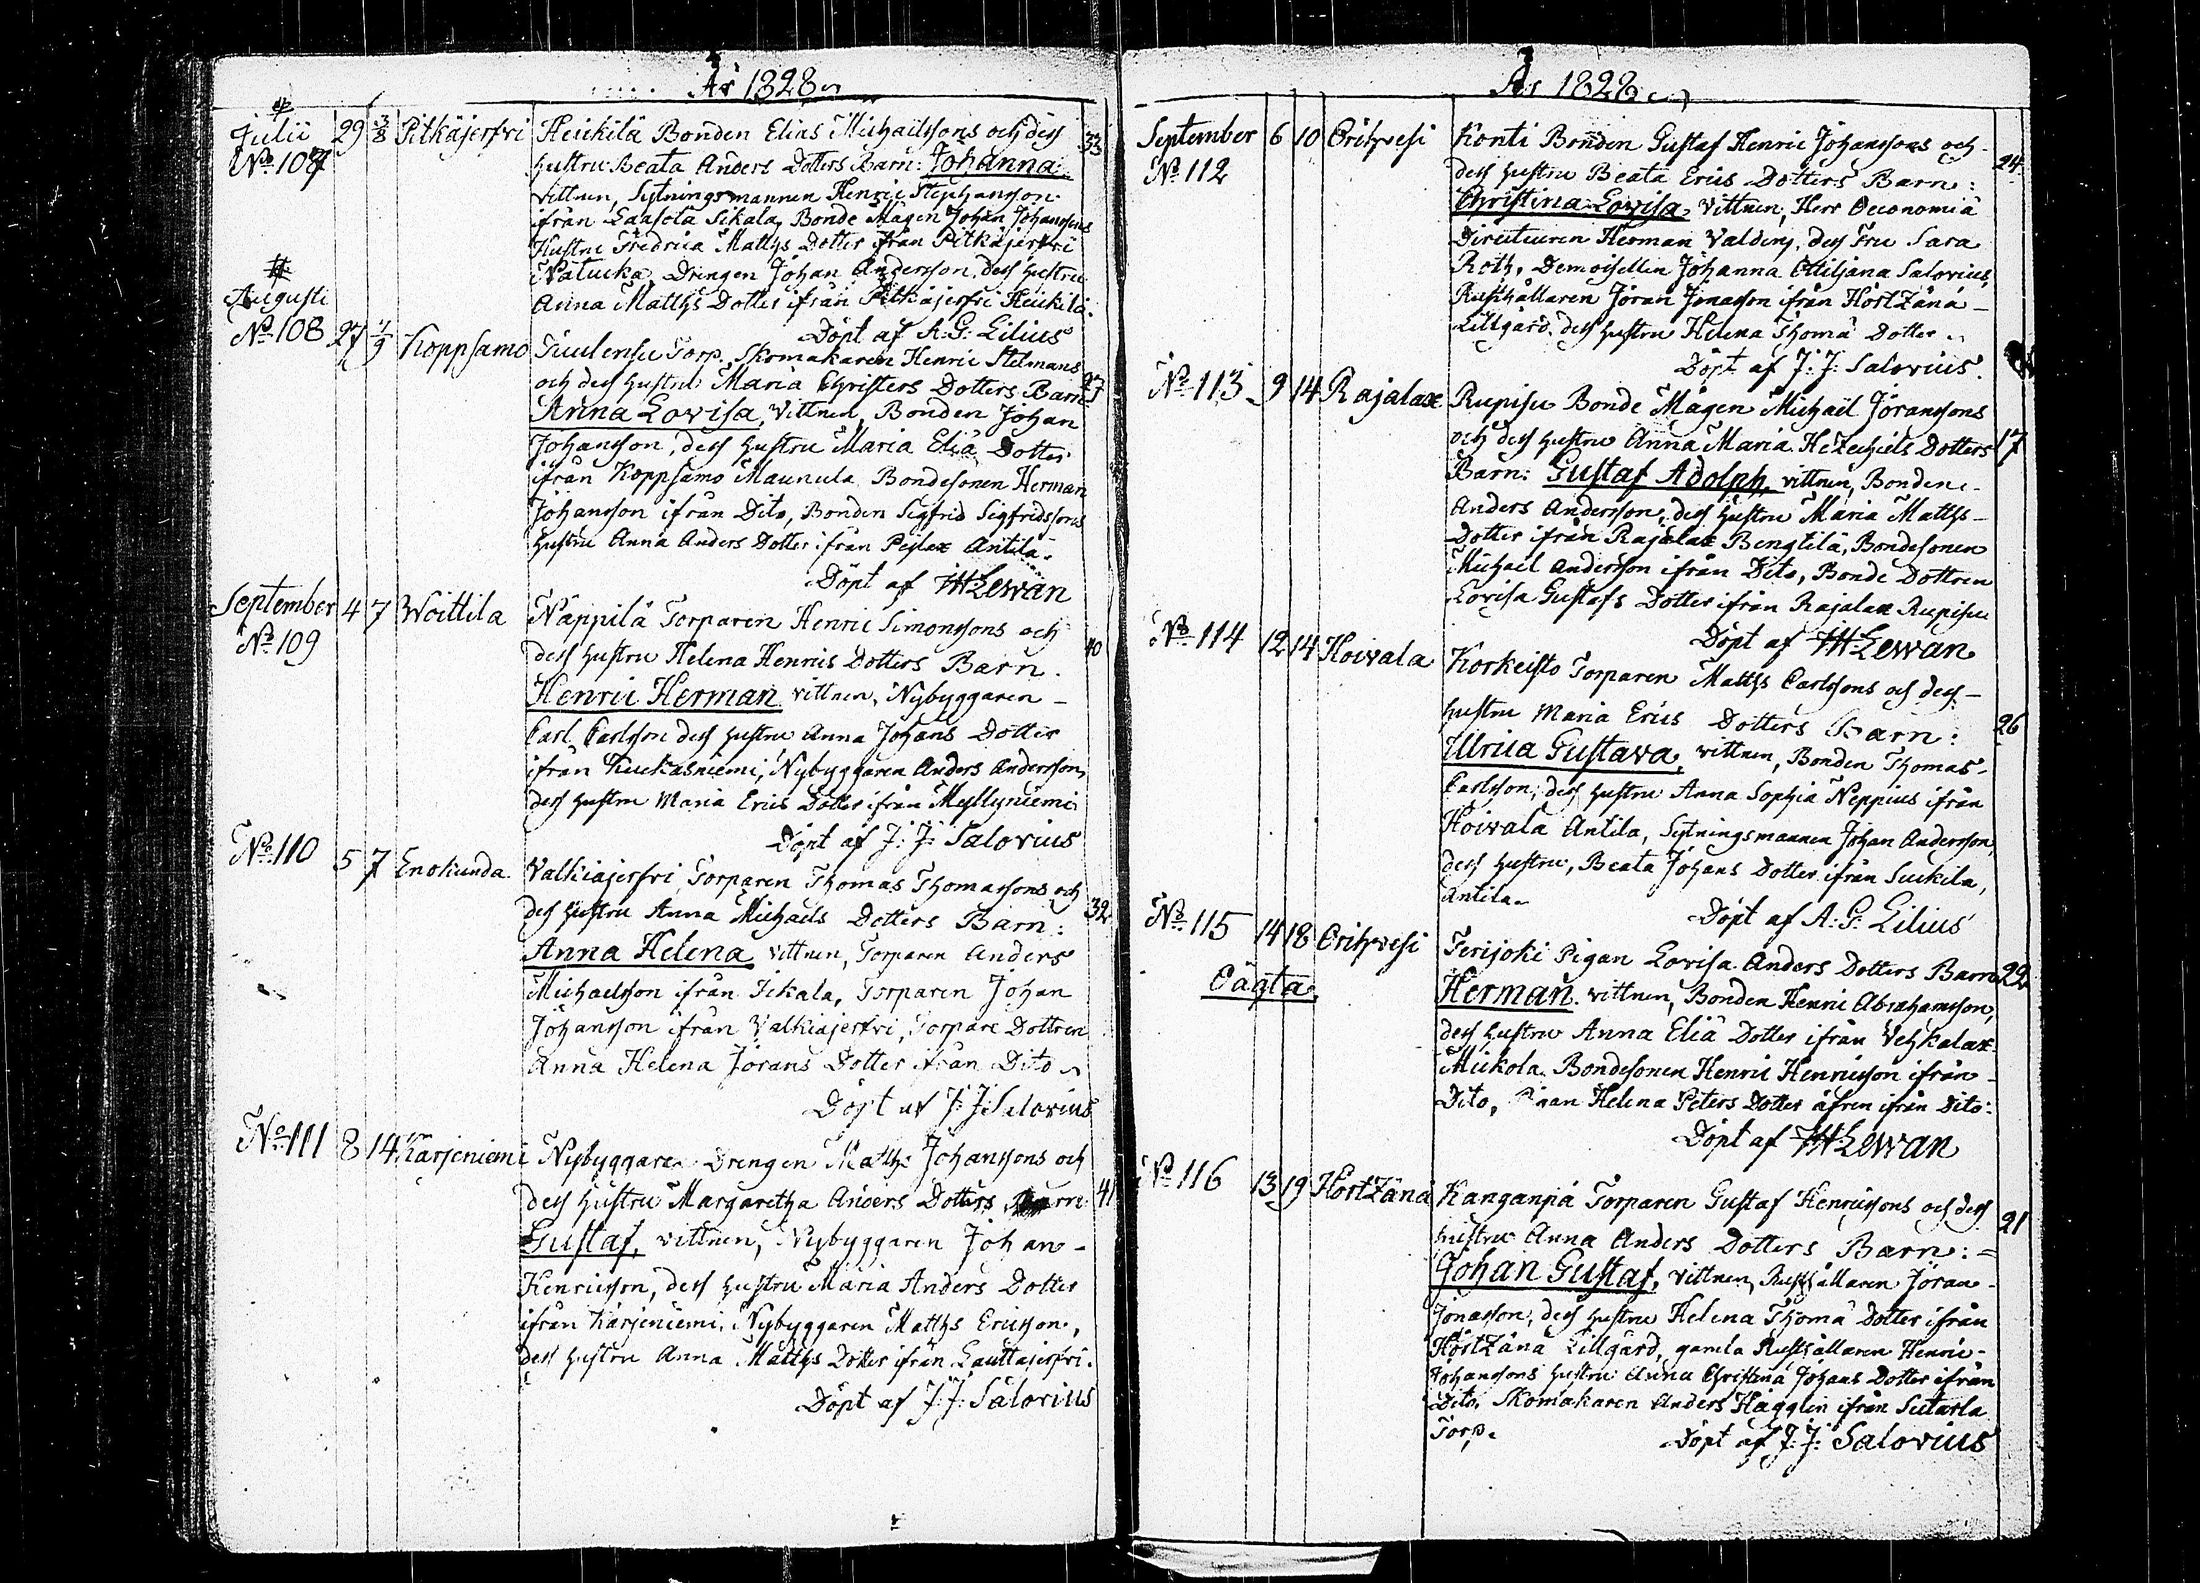 År 1828
Julii 29 3/8 Pitkäjerfvi Heickilä Bonden Elias Michaelssons och dess 33
No 107 hustru Beata Anders Dotters Barn: Johanna
vittnen, Sytningsmannen Henric Stephansson
ifrån Laasola Sikala, Bonde Mågen Johan Johanssons
Hustru Fredrica Matths Dotter ifrån Pitkäjerfvi
Natucka, Drengen Johan Andersson, dess hustru
Anna Matths Dotter ifrån Pitkäjerfvi Heickilä.
Döpt af A: G: Lilius
Augusti
No 108 27 1/9 Koppsamo Torp. Skomakaren Henric Stelmans
och dess hustru Maria Christers Dotters Barn 27
Anna Lovisa, vittnen, Bonden Johan
Johansson, dess hustru Maria Eliä Dotter
ifrån Koppsamo Maunula Bondesonen Herman
Johansson ifrån Dito, Bonden Sigfrid Sigfridssons
hustru Anna Anders Dotter ifrån Antila.
Döpt af Lewan
September 4 7 Woittila Nappilä Torparen Henric Simonssons och
No 109 dess hustru Helena Henrics Dotters Barn. 40
Henric Herman vittnen, Nybyggaren
Carl Carlsson dess hustru Anna Johans Dotter
ifrån Kuckasniemi, Nybyggaren Anders Andersson,
dess hustru Maria Erics Dotter ifrån Myllyniemi
Döpt af J: J: Salovius
No 110 5 7 Enokunda. Valkiajerfvi Torparen Thomas Thomassons och
dess hustru Anna Michaels Dotters Barn: 32
Anna Helena vittnen, Torparen Anders
Michaelsson ifrån Sikala, Torparen Johan
Johansson ifrån Valkiajerfvi, Torpare Dottren
Anna Helena Jörans Dotter ifrån Dito
Döpt af J: J: Salovius
No 111 8 14 Kärjeniemi Nybyggare Drengen Matths Johanssons och
dess hustru Margaretha Anders Dotters Barn 41
Gustaf, vittnen, Nybyggaren Johan
Henricsson, dess hustru Maria Anders Dotter
ifrån Kärjeniemi, Nybyggaren Matths Ericsson,
dess hustru Anna Matths Dotter ifrån Lauttajerfvi.
Döpt af J: J: Salovius
År 1828
September 6 10 Orihvesi Konti Bonden Gustaf Henric Johanssons och
No 112 dess hustru Beata Erics Dotters Barn: 24
Christina Lovisa, vittnen, Herr Oeconomiä
Directeuren Herman Valden, dess Fru Sara
Roth, Demoisellin Johanna Ottiljana Salovius,
Rusthållaren Jöran Jonasson ifrån HörtZänä
Lillgård, dess hustru Helena Thomä Dotter
Döpt af J: J: Salovius.
No 113 9 14 Rajalax Rupisu Bonde Mågen Michaël Jöranssons
och dess hustru Anna Maria HeZechiels Dotters 17
Barn: Gustaf Adolph, vittnen, Bonden
Anders Andersson, dess hustru Maria Matths
Dotter ifrån Rajalax Bengtilä, Bondesonen
Michael Andersson ifrån Dito, Bonde Dottren
Lovisa Gustafs Dotter ifrån Rajalax Rupisu
Döpt af Lewan
No 114 12 14 Hoivala Korkeisto Torparen Matths Carlssons och dess
hustru Maria Erics Dotters Barn: 26
Ulrica Gustava, vittnen, Bonden Thomas
Carlsson, dess hustru Anna Sophia Neppius ifrån
Hoivala Antila, Sytningsmannen Johan Andersson,
dess hustru, Beata Johans Dotter ifrån Suckila,
Antila
Döpt af A: G: Lilius
No 115 14 18 Orihvesi Terijoki Pigan Lovisa Anders Dotters Barn 22
Oägta Herman vittnen, Bonden Henric Abrahamsson,
dess hustru Anna Eliä Dotter ifrån Vehkalax
Mickola. Bondesonen Henric Henricsson ifrån
Dito, Pigan Helena Peters Dotter äfven ifrån Dito:
Döpt af Lewan
No 116 13 19 HörtZänä Kanganpä Torparen Gustaf Henricssons och dess
hustru Anna Anders Dotters Barn: 21
Johan Gustaf, vittnen, Rusthållaren Jöran
Jonasson, dess hustru Helena Thomä Dotter ifrån
HörtZänä Lillgård, gamla Rusthållaren Henric
Johanssons hustru Anna Christina Johans Dotter ifrån
Dito, Skomakaren Anders Hägglin ifrån Sutarla
Torp.
Döpt af J: J: Salovius